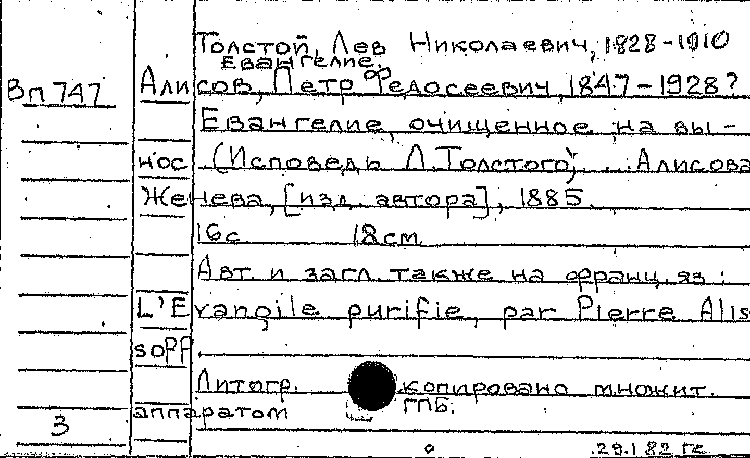 Толстой, Лев Николаевич, 1828-1910
Евангелие.
Вп 747 Алисов, Петр Федосеевич, 1847-1928?
Евангелие, очищенное на вы-
нос (Исповедь Л.Толстого) ... Алисова
Женева, [изд. автора], 1885.
16с 18см
Авт и загл. также на франц.яз:
L'Evangile purifie, par Pierre Alis
soff.
Литогр. копировано множит.
аппаратом ГПБ.
3
.29.1 82 ге